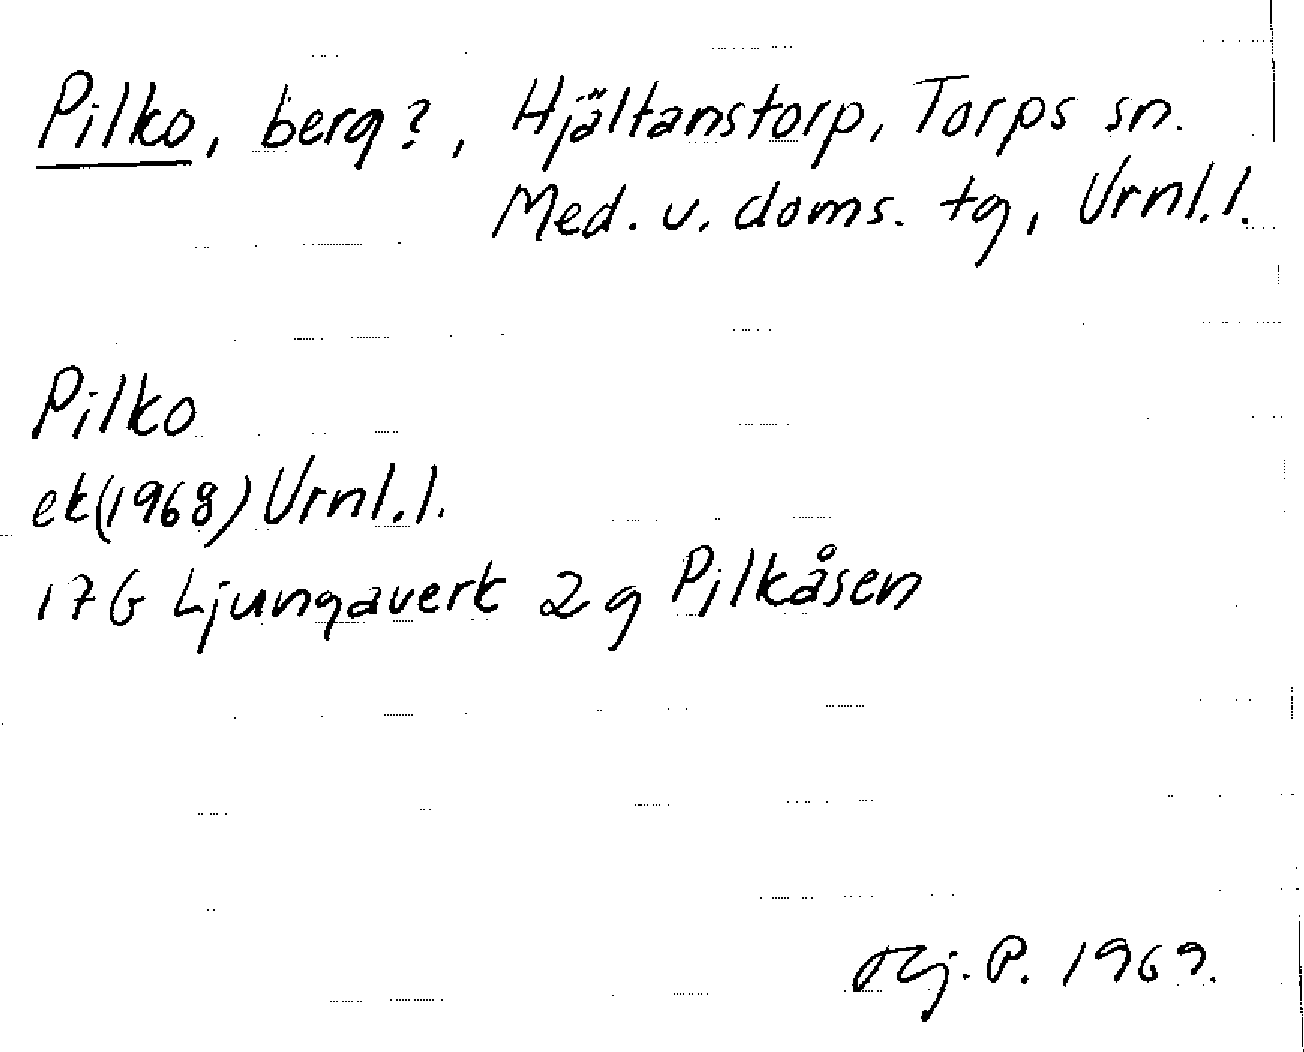 Pilko, berg?, Hjältanstorp, Torps sn.
Med. v. doms. tg, Vrnl.l.
Pilko
ek(1968) Vrnl.l.
17G Ljungaverk 2g Pilkåsen
Hj. P. 1969.